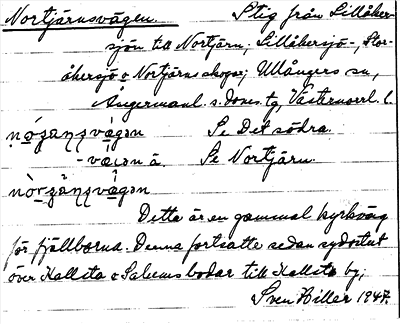 Nortjärnsvägen. Stig från Lillåker-
sjön till Nortjärn; Lillåkersjö-, Stor-
åkersjö o Nortjärns skogar; Ullångers sn,
Ångermanl. s. doms. tg, Västernorrl. l.
Se Det södra.
Se Nortjärn.
Detta är en gammal kyrkväg
för fjällborna. Denna fortsatte sedan sydostut
över Kallsta o Salsens bodar till Kallsta by;
Sven Hiller 1947.